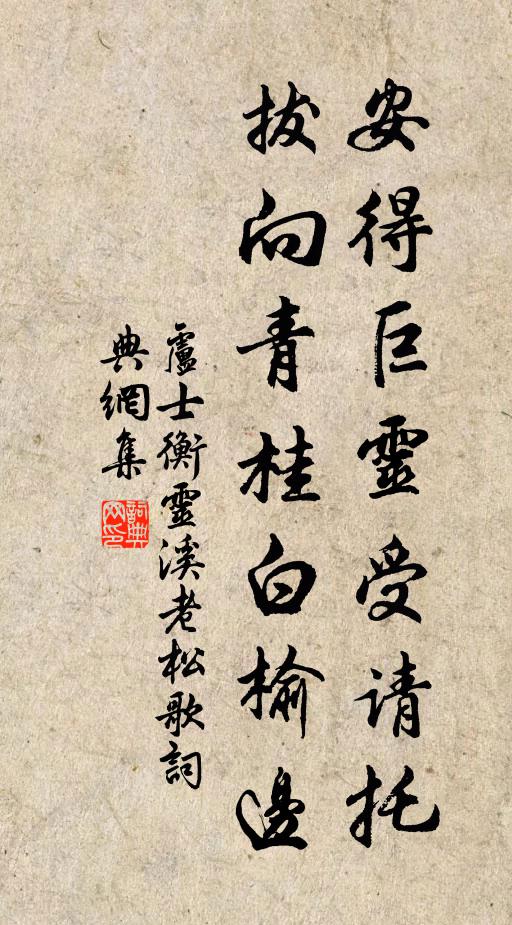 安得巨靈受请托
拔向青桂白榆邊
盧士衡靈溪老松歌詞
典網集
詞典网印